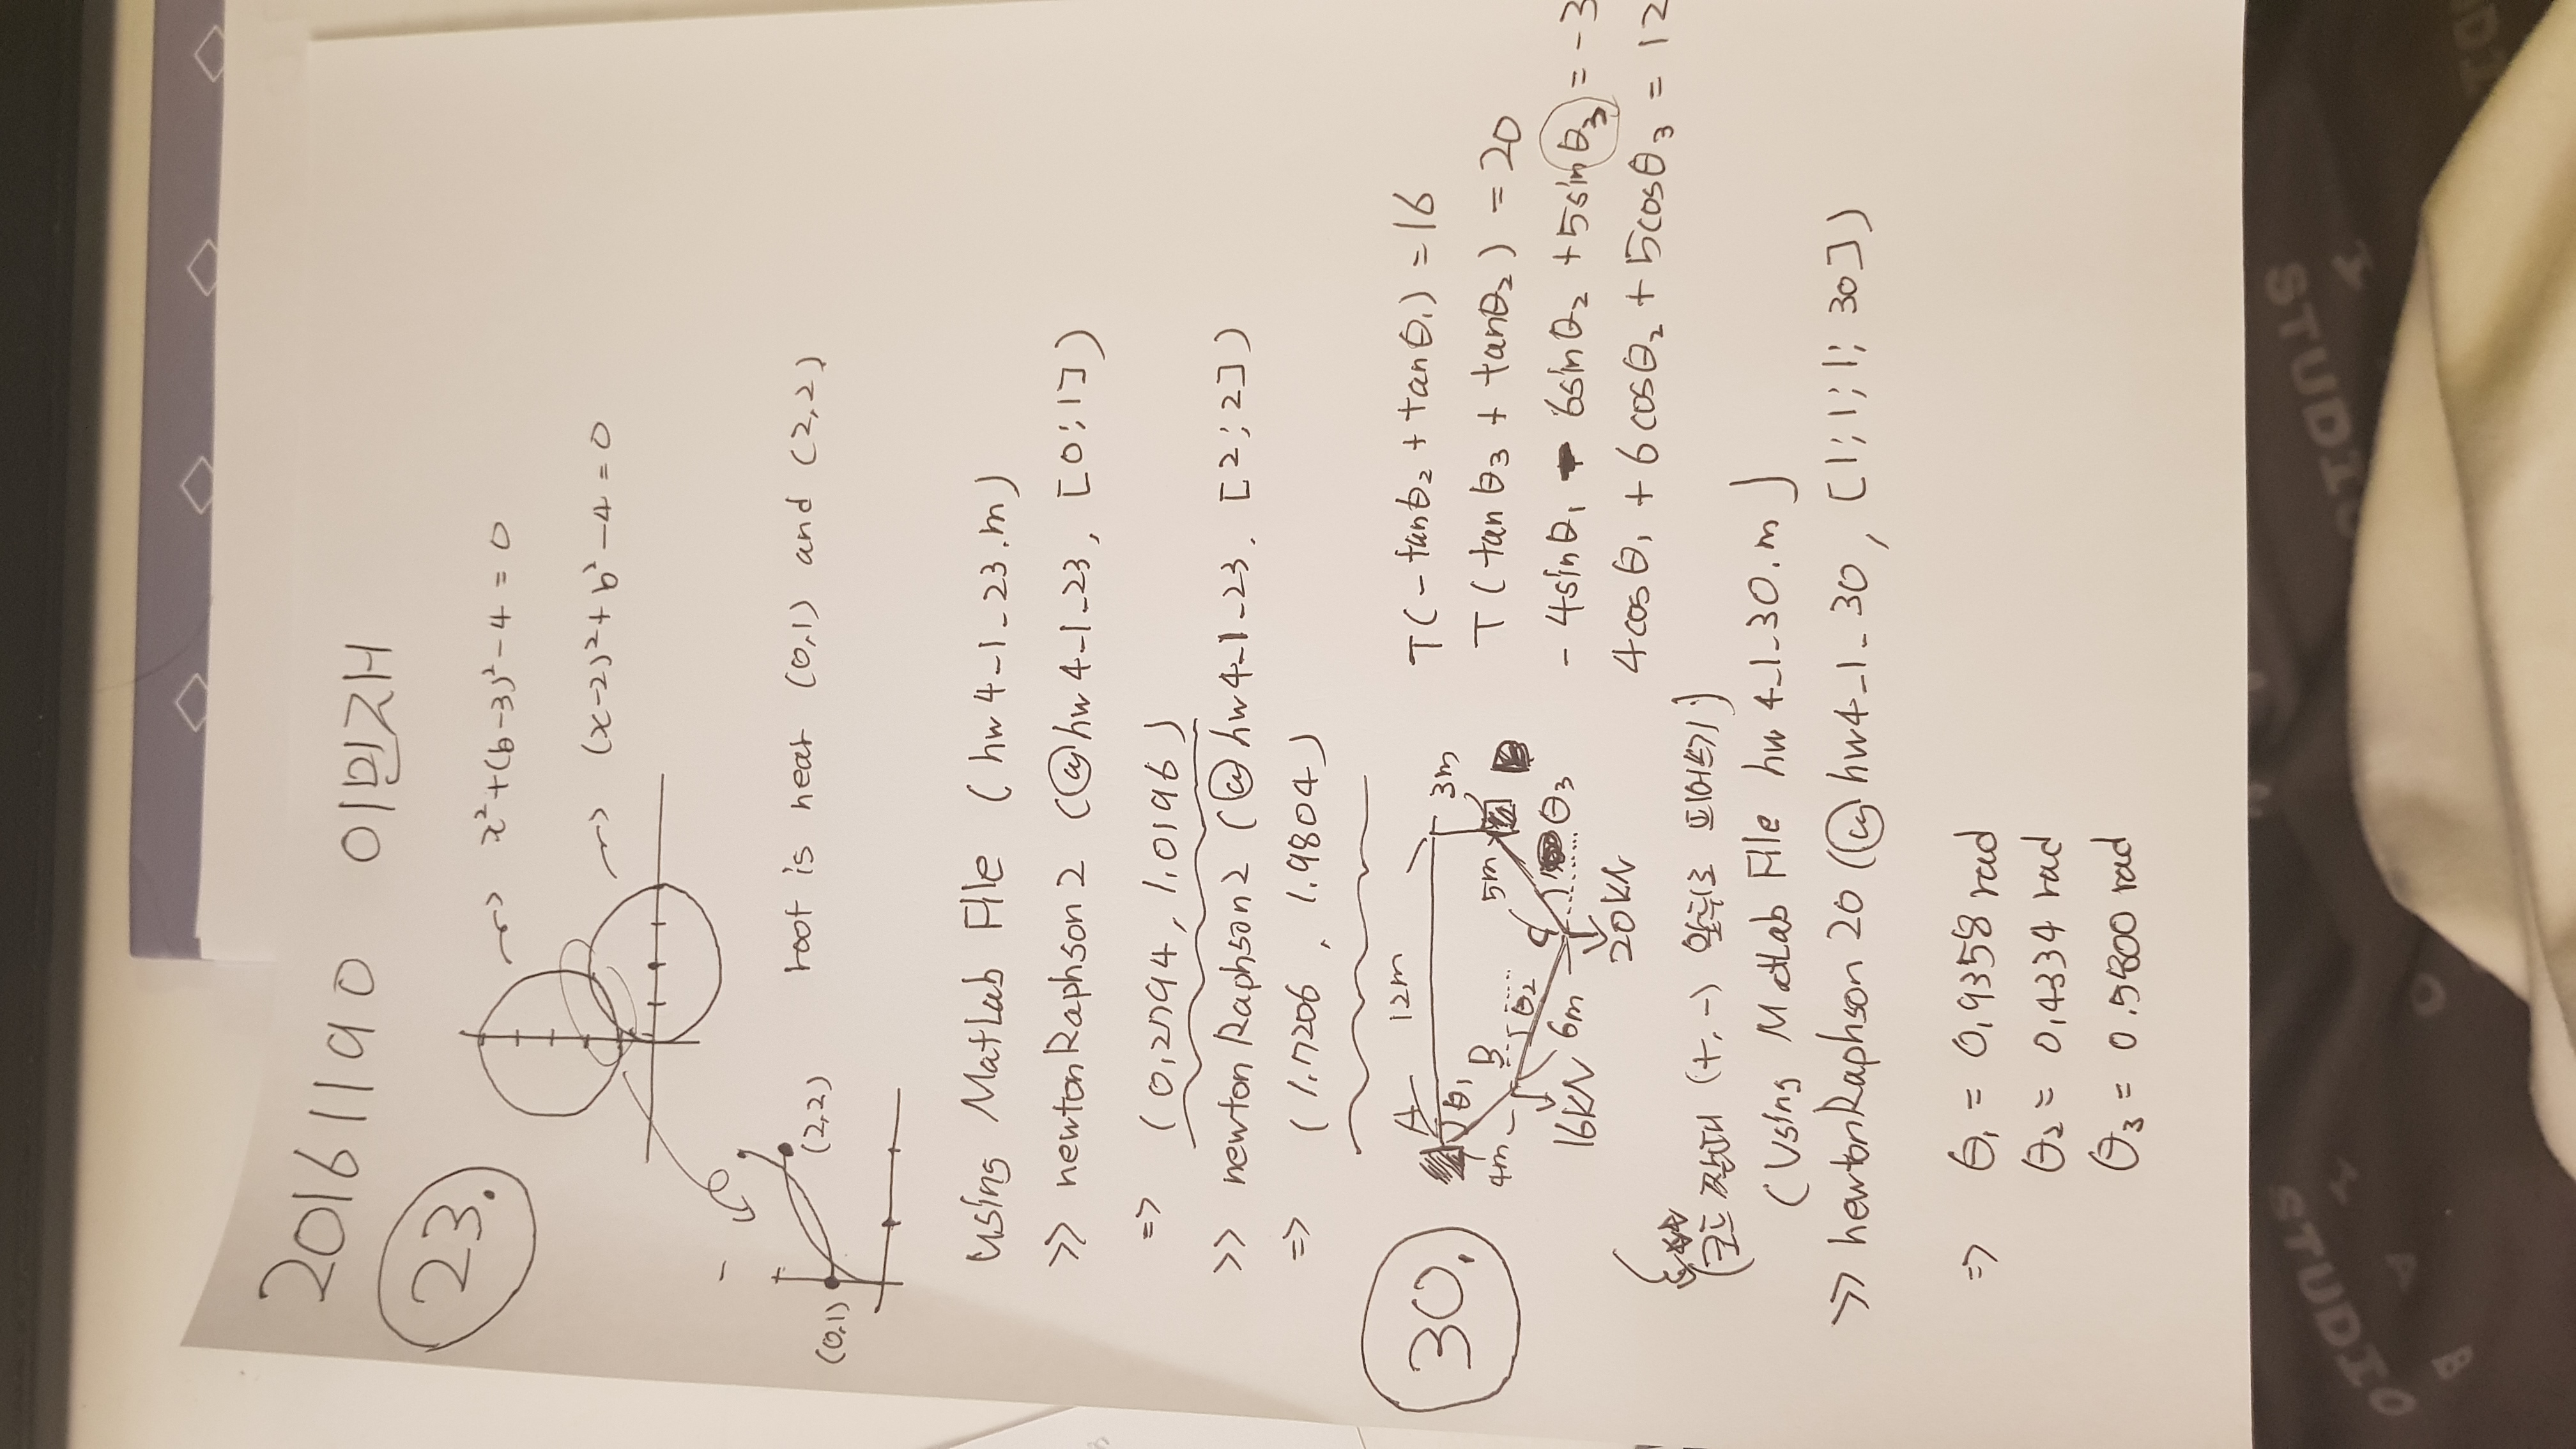 20161190 이민재
23.
x²+(b-3)²-4 = 0
(x-2)²+b²-4=0
(0,1)
(2,2)
root is near (0,1) and (2,2)
Using MatLab File (hw4-1-23.m)
>> newtonRaphson2 (@hw4-1-23, [0;1])
=> (0.2794, 1.0196)
>> newtonRaphson2 (@hw4-1-23, [2;2])
=> (1.7206, 1.9804)
30.
A 12m
θ₁ 3m
4m B 5m
θ₂ C θ₃
16kN 6m
20kN
T(-tanθ₂ + tanθ₁) = 16
T(tanθ₃ + tanθ₂) = 20
-4sinθ₁ - 6sinθ₂ +5sinθ₃ = -3
4cosθ₁ + 6cosθ₂ + 5cosθ₃ = 12
(코드 짤때 (+, -) 앞뒤로 띄어쓰기)
(Using MatLab File hw4-1-30.m)
>> newtonRaphson20 (@hw4-1-30, [1;1;1;30])
=> θ₁ = 0.9358 rad
θ₂ = 0.4334 rad
θ₃ = 0.5800 rad
STUDIO
STUDIO